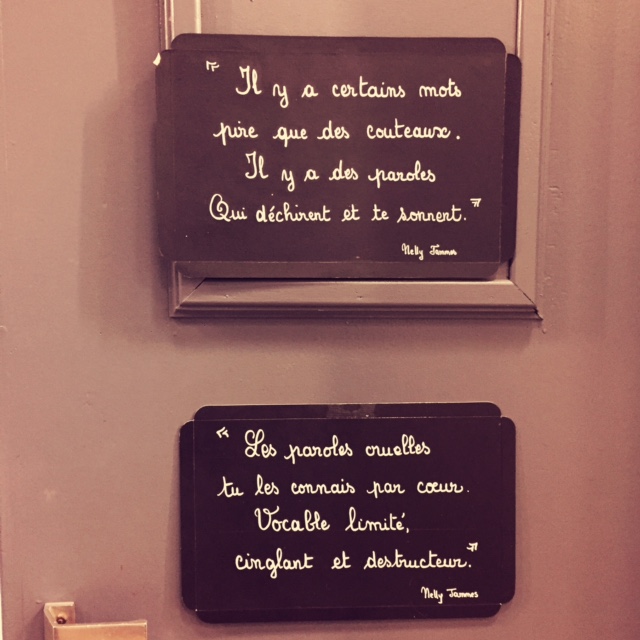 " Il y a certains mots
pire que des couteaux.
Il y a des paroles
Qui déchirent et te sonnent."
Nelly Jammes
" Les paroles cruelles
tu les connais par cœur.
Vocable limité,
cinglant et destructeur."
Nelly Jammes